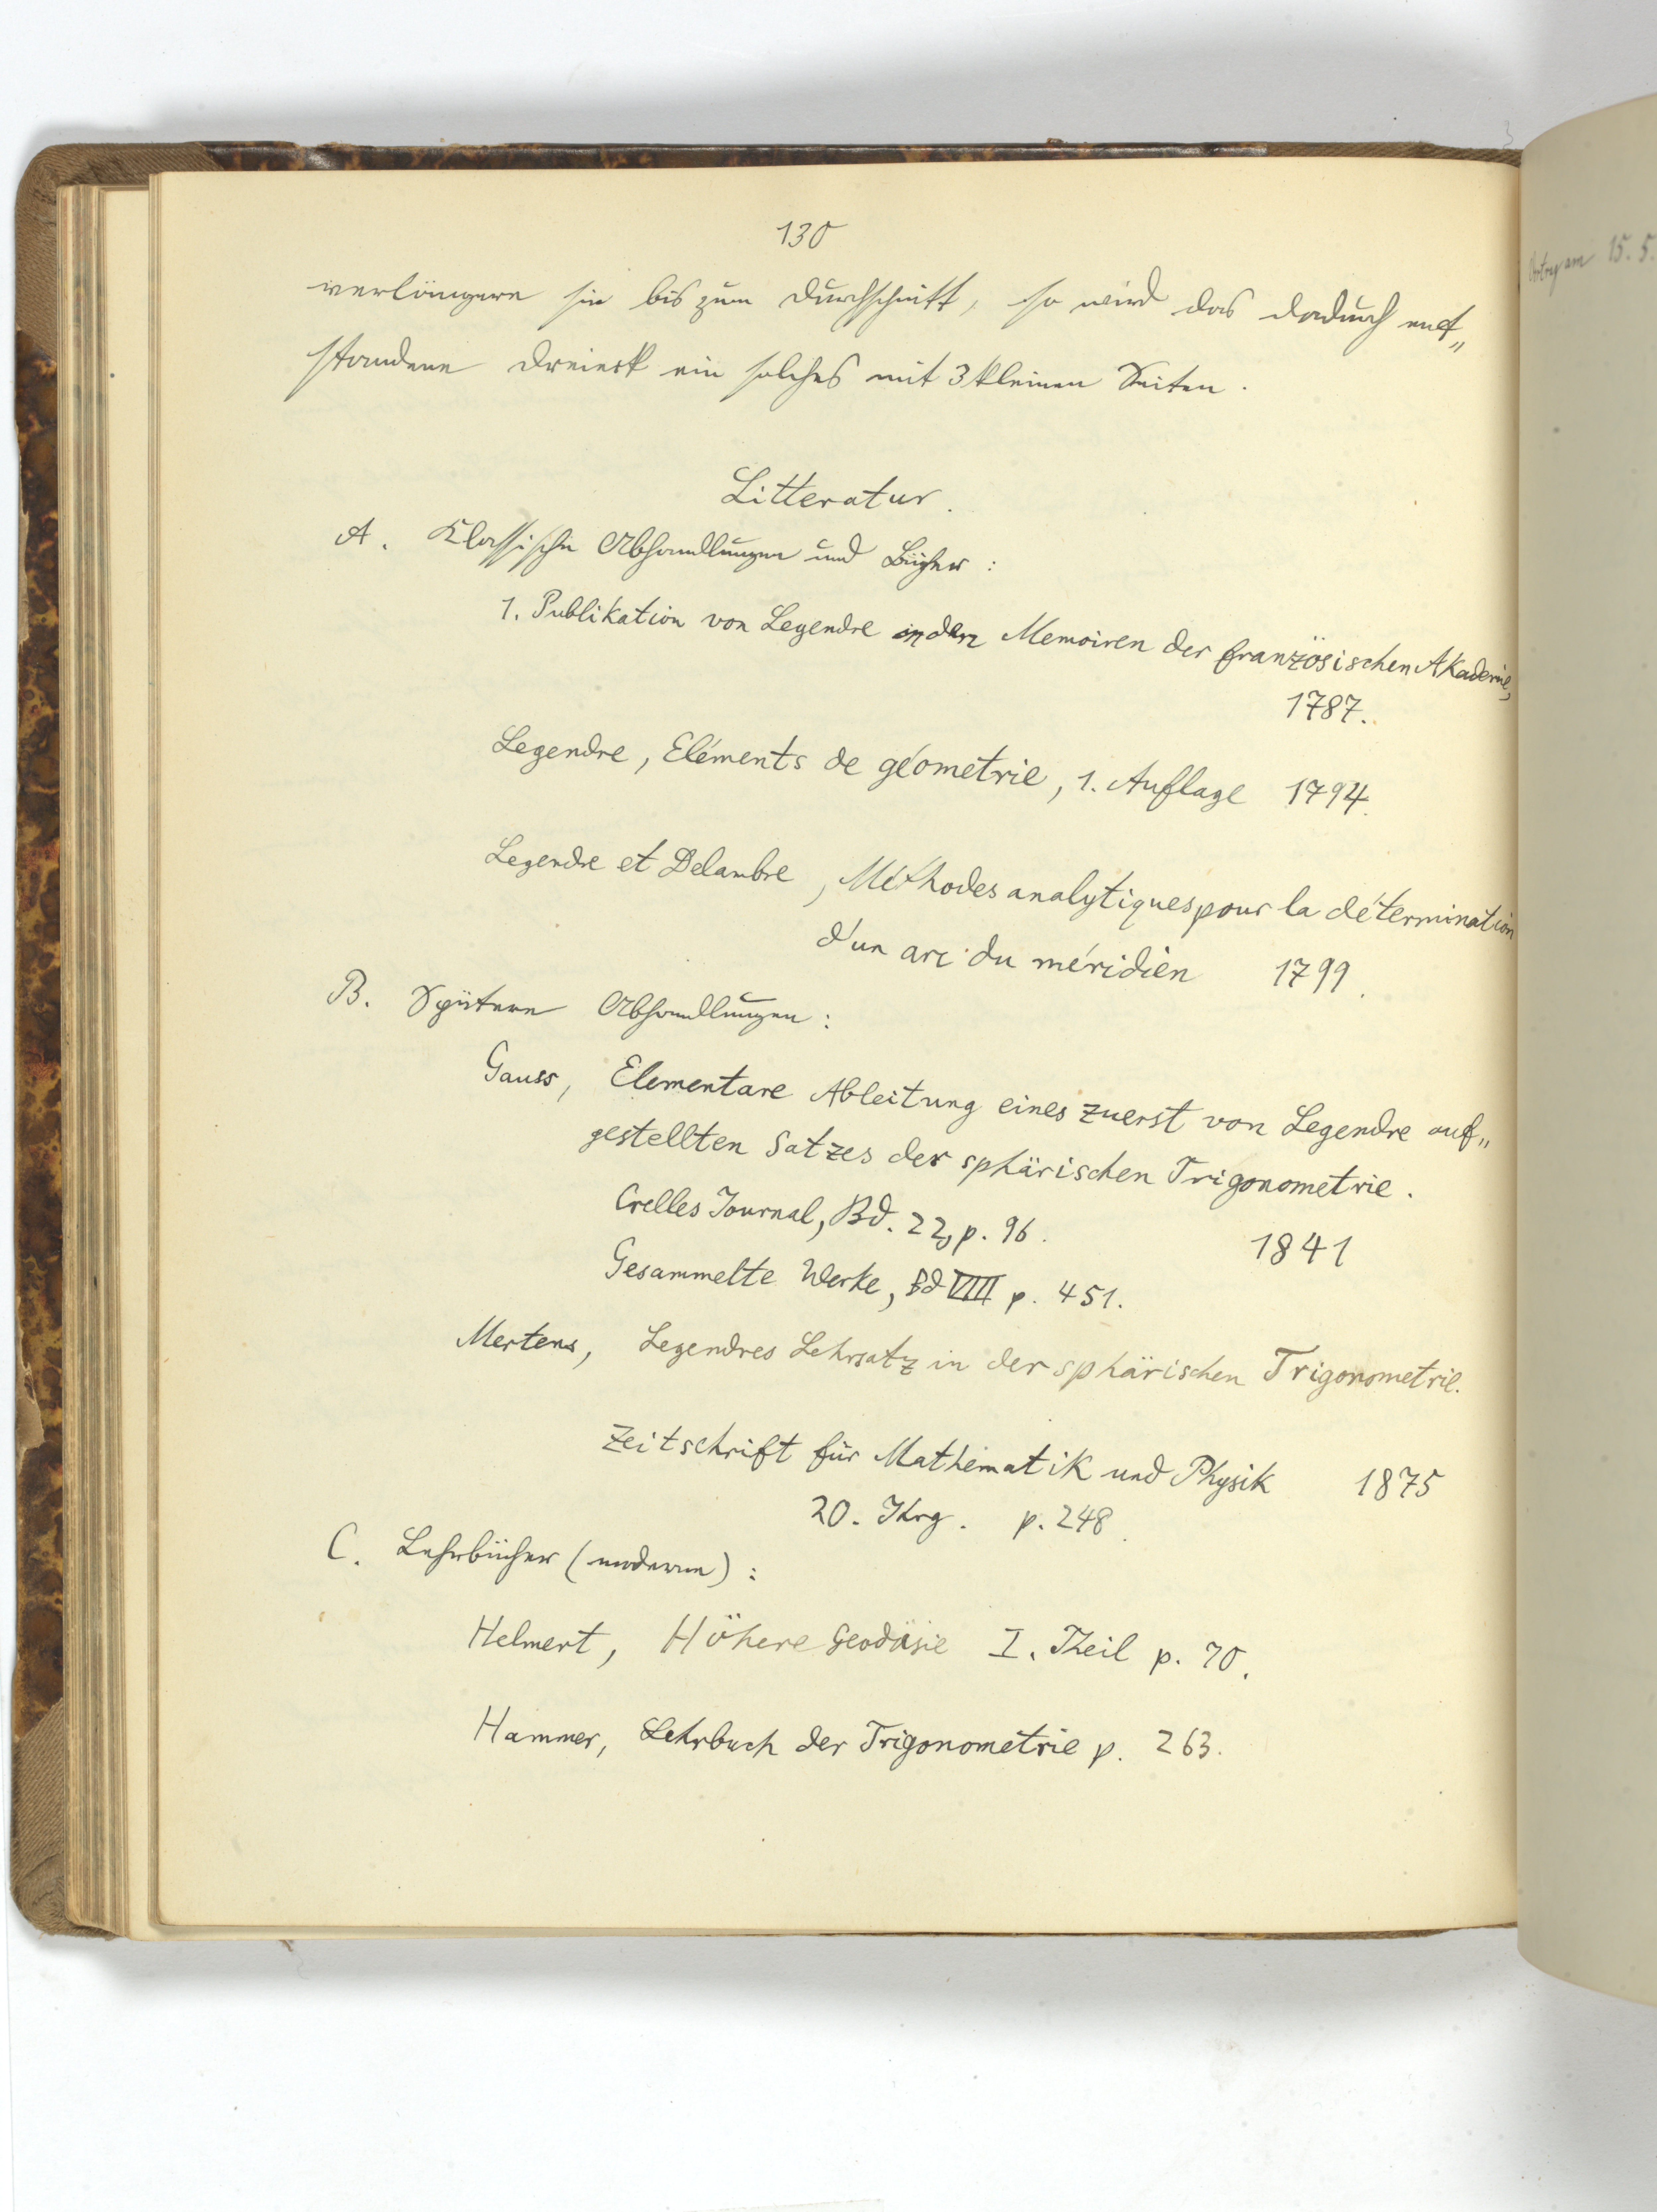 130
verlängern sie bis zum Durchschnitt, so wird das dadurch ent„
standene Dreieck ein solches mit 3 kleinen Seiten.
Litteratur.
A. Klassische Abhandlungen und Bücher:
1. Publikation von Legendre in den Memoiren der französischen Akademie,
1787.
Legendre, Eléments de géometrie, 1. Auflage 1794.
Legendre et Delambre, Méthodes analytiques pour la détermination
d'un arc du méridien 1799.
B. Spätere Abhandlungen:
Gauss, Elementare Ableitung eines zuerst von Legendre auf„
gestellten Satzes der sphärischen Trigonometrie.
Crelles Journal, Bd. 22, p. 96. 1841
Gesammelte Werke, Bd VIII p. 451.
Mertens, Legendres Lehrsatz in der sphärischen Trigonometrie.
Zeitschrift für Mathematik und Physik 1875
20. Jhrg. p. 248.
C. Lehrbücher (moderne):
Helmert, Höhere Geodäsie I. Theil p. 70.
Hammer, Lehrbuch der Trigonometrie p. 263.
Vortrag am 15. 5.